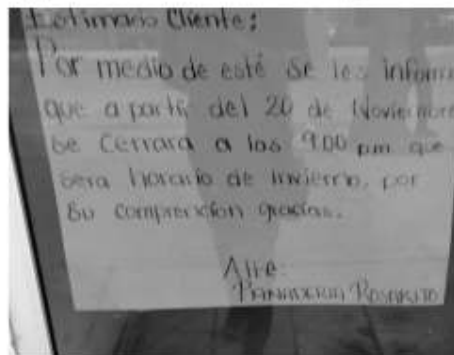 Estimado Cliente:
Por medio de esté se les inform
que a partir del 20 de Noviembre
se Cerrara a las 9:00 pm que
sera horario de invierno, por
su comprención gracias.
Atte:
PANADERIA ROSARITO